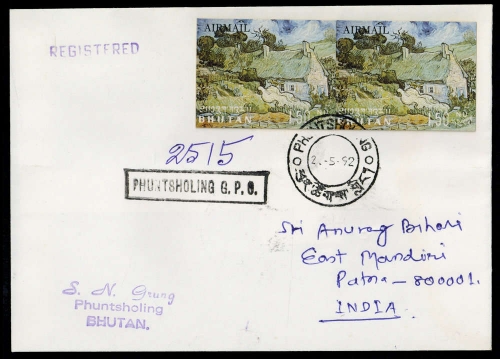 REGISTERED
AIRMAIL AIRMAIL
BHUTAN 1.50 BHUTAN 1.50
PHUNTSHOLING
2515
-5-92
PHUNTSHOLING G.P.O.
Sri Anurag Bihari
East Mandiri
Patna - 800001.
INDIA.
S. N. Grung
Phuntsholing
BHUTAN.